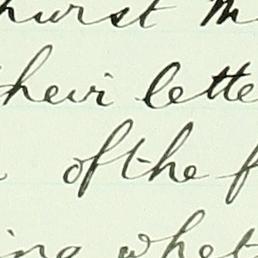 hurst M
their lette
of the f
ing what